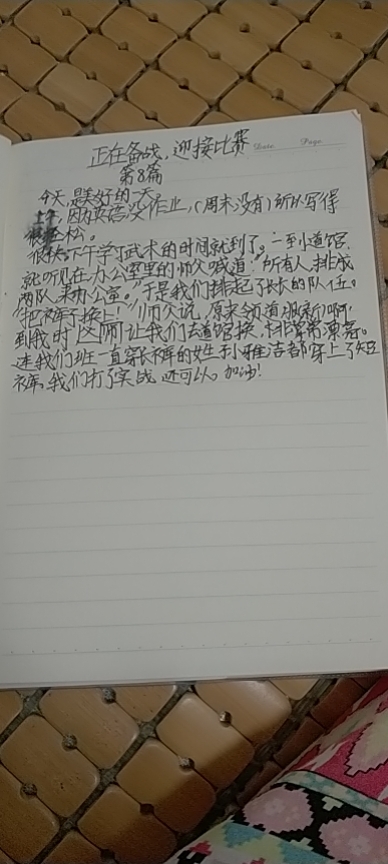 正在备战,迎接比赛
Date. Page.
第8篇
今天,是美好的一天
上午,因为英语没作业,(周末没有)所以写得
很轻松。
很快,下午学武术的时间就到了。一到道馆,
就听见在办公室里的师父喊道:"所有人,排成
两队,来办公室。"于是我们排起了长长的队伍。
"把裤子换上!"师父说,原来领道服新啊,
到我时 这 让我们去道馆换,非常常凉爽。
连我们班一直穿长裤的女生 雅洁都穿上了短
裤,我们打了实战,还可以。加油!